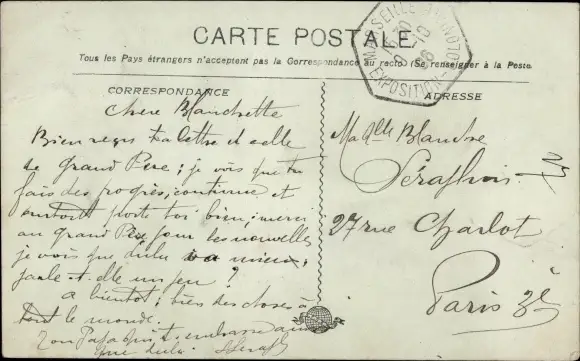 CARTE POSTALE
Tous les Pays étrangers n'acceptent pas la Correspondance au recto (Se renseigner à la Poste
MARSEILLE
EXPOSITION - COLONIAL
CORRESPONDANCE
Chère Blanchette
Bien reçu ta lettre et celle
de grand Père; je vois que tu
fais des progrès, continue et
surtout porte toi bien; merci
au grand Père pour les nouvelles
je vois que Lulu va mieux,
parle-t-elle un peu ?
a bientôt; bien des choses à
tout le monde.
Ton Papa qui t'embrasse ainsi
que Lulu
ADRESSE
Mad'lle Blanche
Séraphin
27 rue Charlot
Paris 3e